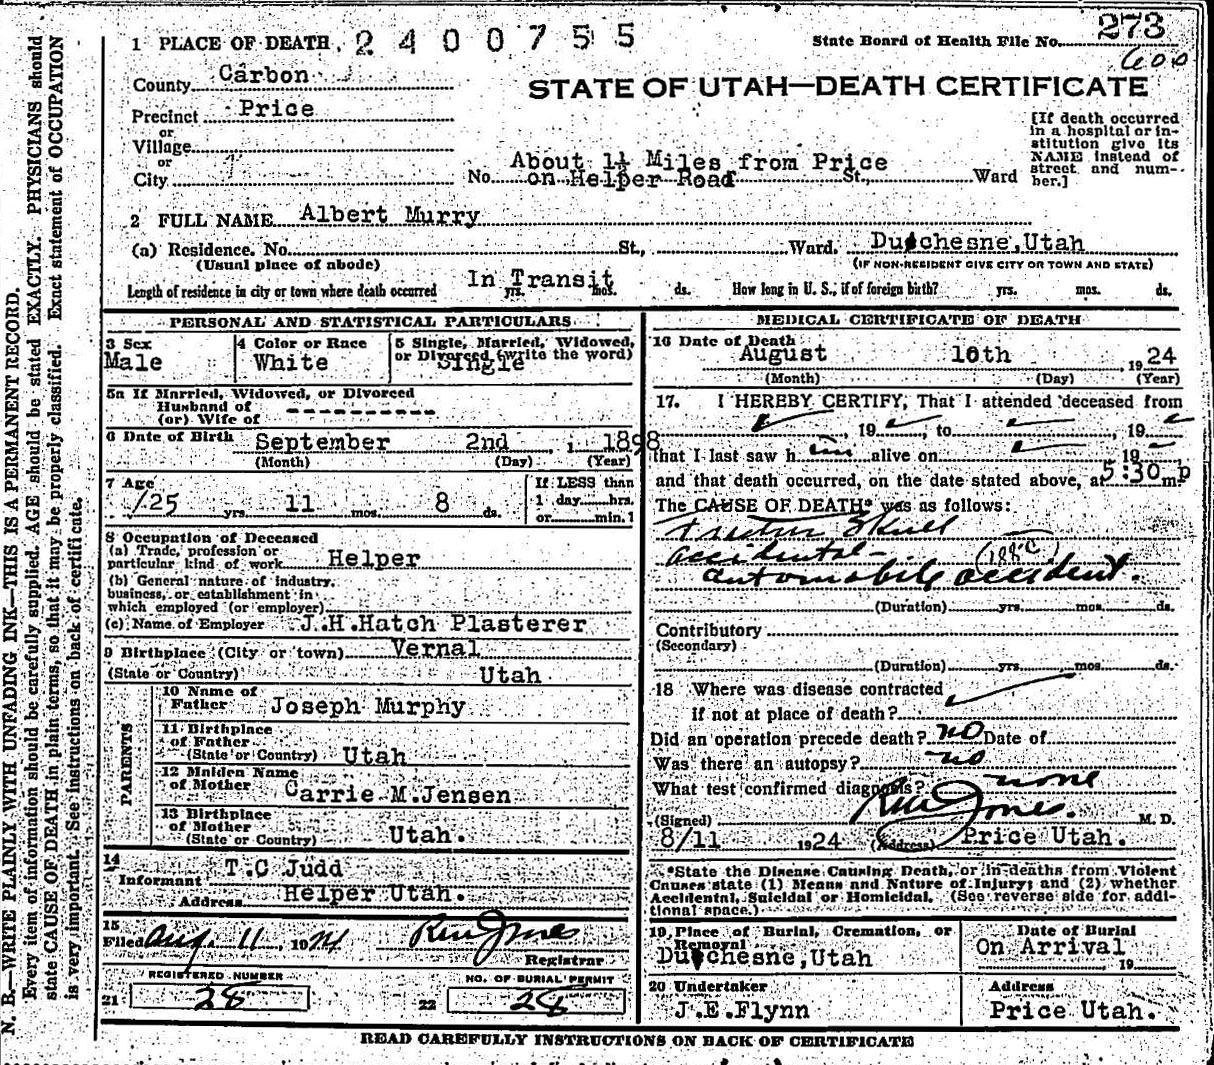 1 PLACE OF DEATH, 2400755
State Board of Health File No. 273
600
County Carbon
STATE OF UTAH—DEATH CERTIFICATE
Precinct Price
or
Village
or
City
No. About 1¼ Miles from Price
on Helper Road St., Ward
[If death occurred
in a hospital or in-
stitution give its
NAME instead of
street and num-
ber.]
2 FULL NAME Albert Murry
(a) Residence. No. St., Ward. Duchesne, Utah
(Usual place of abode)
(IF NON-RESIDENT GIVE CITY OR TOWN AND STATE)
Length of residence in city or town where death occurred In Transit yrs. mos. ds. How long in U. S., if of foreign birth? yrs. mos. ds.
PERSONAL AND STATISTICAL PARTICULARS
3 Sex
Male
4 Color or Race
White
5 Single, Married, Widowed,
or Divorced (write the word)
Single
5a If Married, Widowed, or Divorced
Husband of
(or) Wife of
6 Date of Birth September 2nd, 1898
(Month) (Day) (Year)
7 Age
25 yrs. 11 mos. 8 ds.
If LESS than
1 day hrs.
or min.
8 Occupation of Deceased
(a) Trade, profession or
particular kind of work Helper
(b) General nature of industry,
business, or establishment in
which employed (or employer)
(c) Name of Employer J.H.Hatch Plasterer
9 Birthplace (City or town) Vernal
(State or Country) Utah
PARENTS
10 Name of
Father Joseph Murphy
11 Birthplace
of Father
(State or Country) Utah
12 Maiden Name
of Mother Carrie M.Jensen
13 Birthplace
of Mother
(State or Country) Utah.
14
Informant T.C Judd
Address Helper Utah.
15
Filed Aug. 11, 1924
Registrar
REGISTERED NUMBER
21 28
NO. OF BURIAL PERMIT
22 28
MEDICAL CERTIFICATE OF DEATH
16 Date of Death
August 10th, 1924
(Month) (Day) (Year)
17. I HEREBY CERTIFY, That I attended deceased from
, 19 , to , 19
that I last saw him alive on 19
and that death occurred, on the date stated above, at 5:30 m. P
The CAUSE OF DEATH* was as follows:
Skull
accidental—
(188c)
automobile accident.
(Duration) yrs. mos. ds.
Contributory
(Secondary)
(Duration) yrs. mos. ds.
18 Where was disease contracted
if not at place of death?
Did an operation precede death? no Date of
Was there an autopsy? no
What test confirmed diagnosis? none
(Signed) Jones. M. D.
8/11 1924 (Address) Price Utah.
*State the Disease Causing Death, or in deaths from Violent
Causes state (1) Means and Nature of Injury; and (2) whether
Accidental, Suicidal or Homicidal. (See reverse side for addi-
tional space.)
19 Place of Burial, Cremation, or
Removal
Duchesne, Utah
Date of Burial
On Arrival
19
20 Undertaker
J.E.Flynn
Address
Price Utah.
READ CAREFULLY INSTRUCTIONS ON BACK OF CERTIFICATE
N. B.—WRITE PLAINLY WITH UNFADING INK—THIS IS A PERMANENT RECORD.
Every item of information should be carefully supplied. AGE should be stated EXACTLY. PHYSICIANS should
state CAUSE OF DEATH in plain terms, so that it may be properly classified. Exact statement of OCCUPATION
is very important. See instructions on back of certificate.